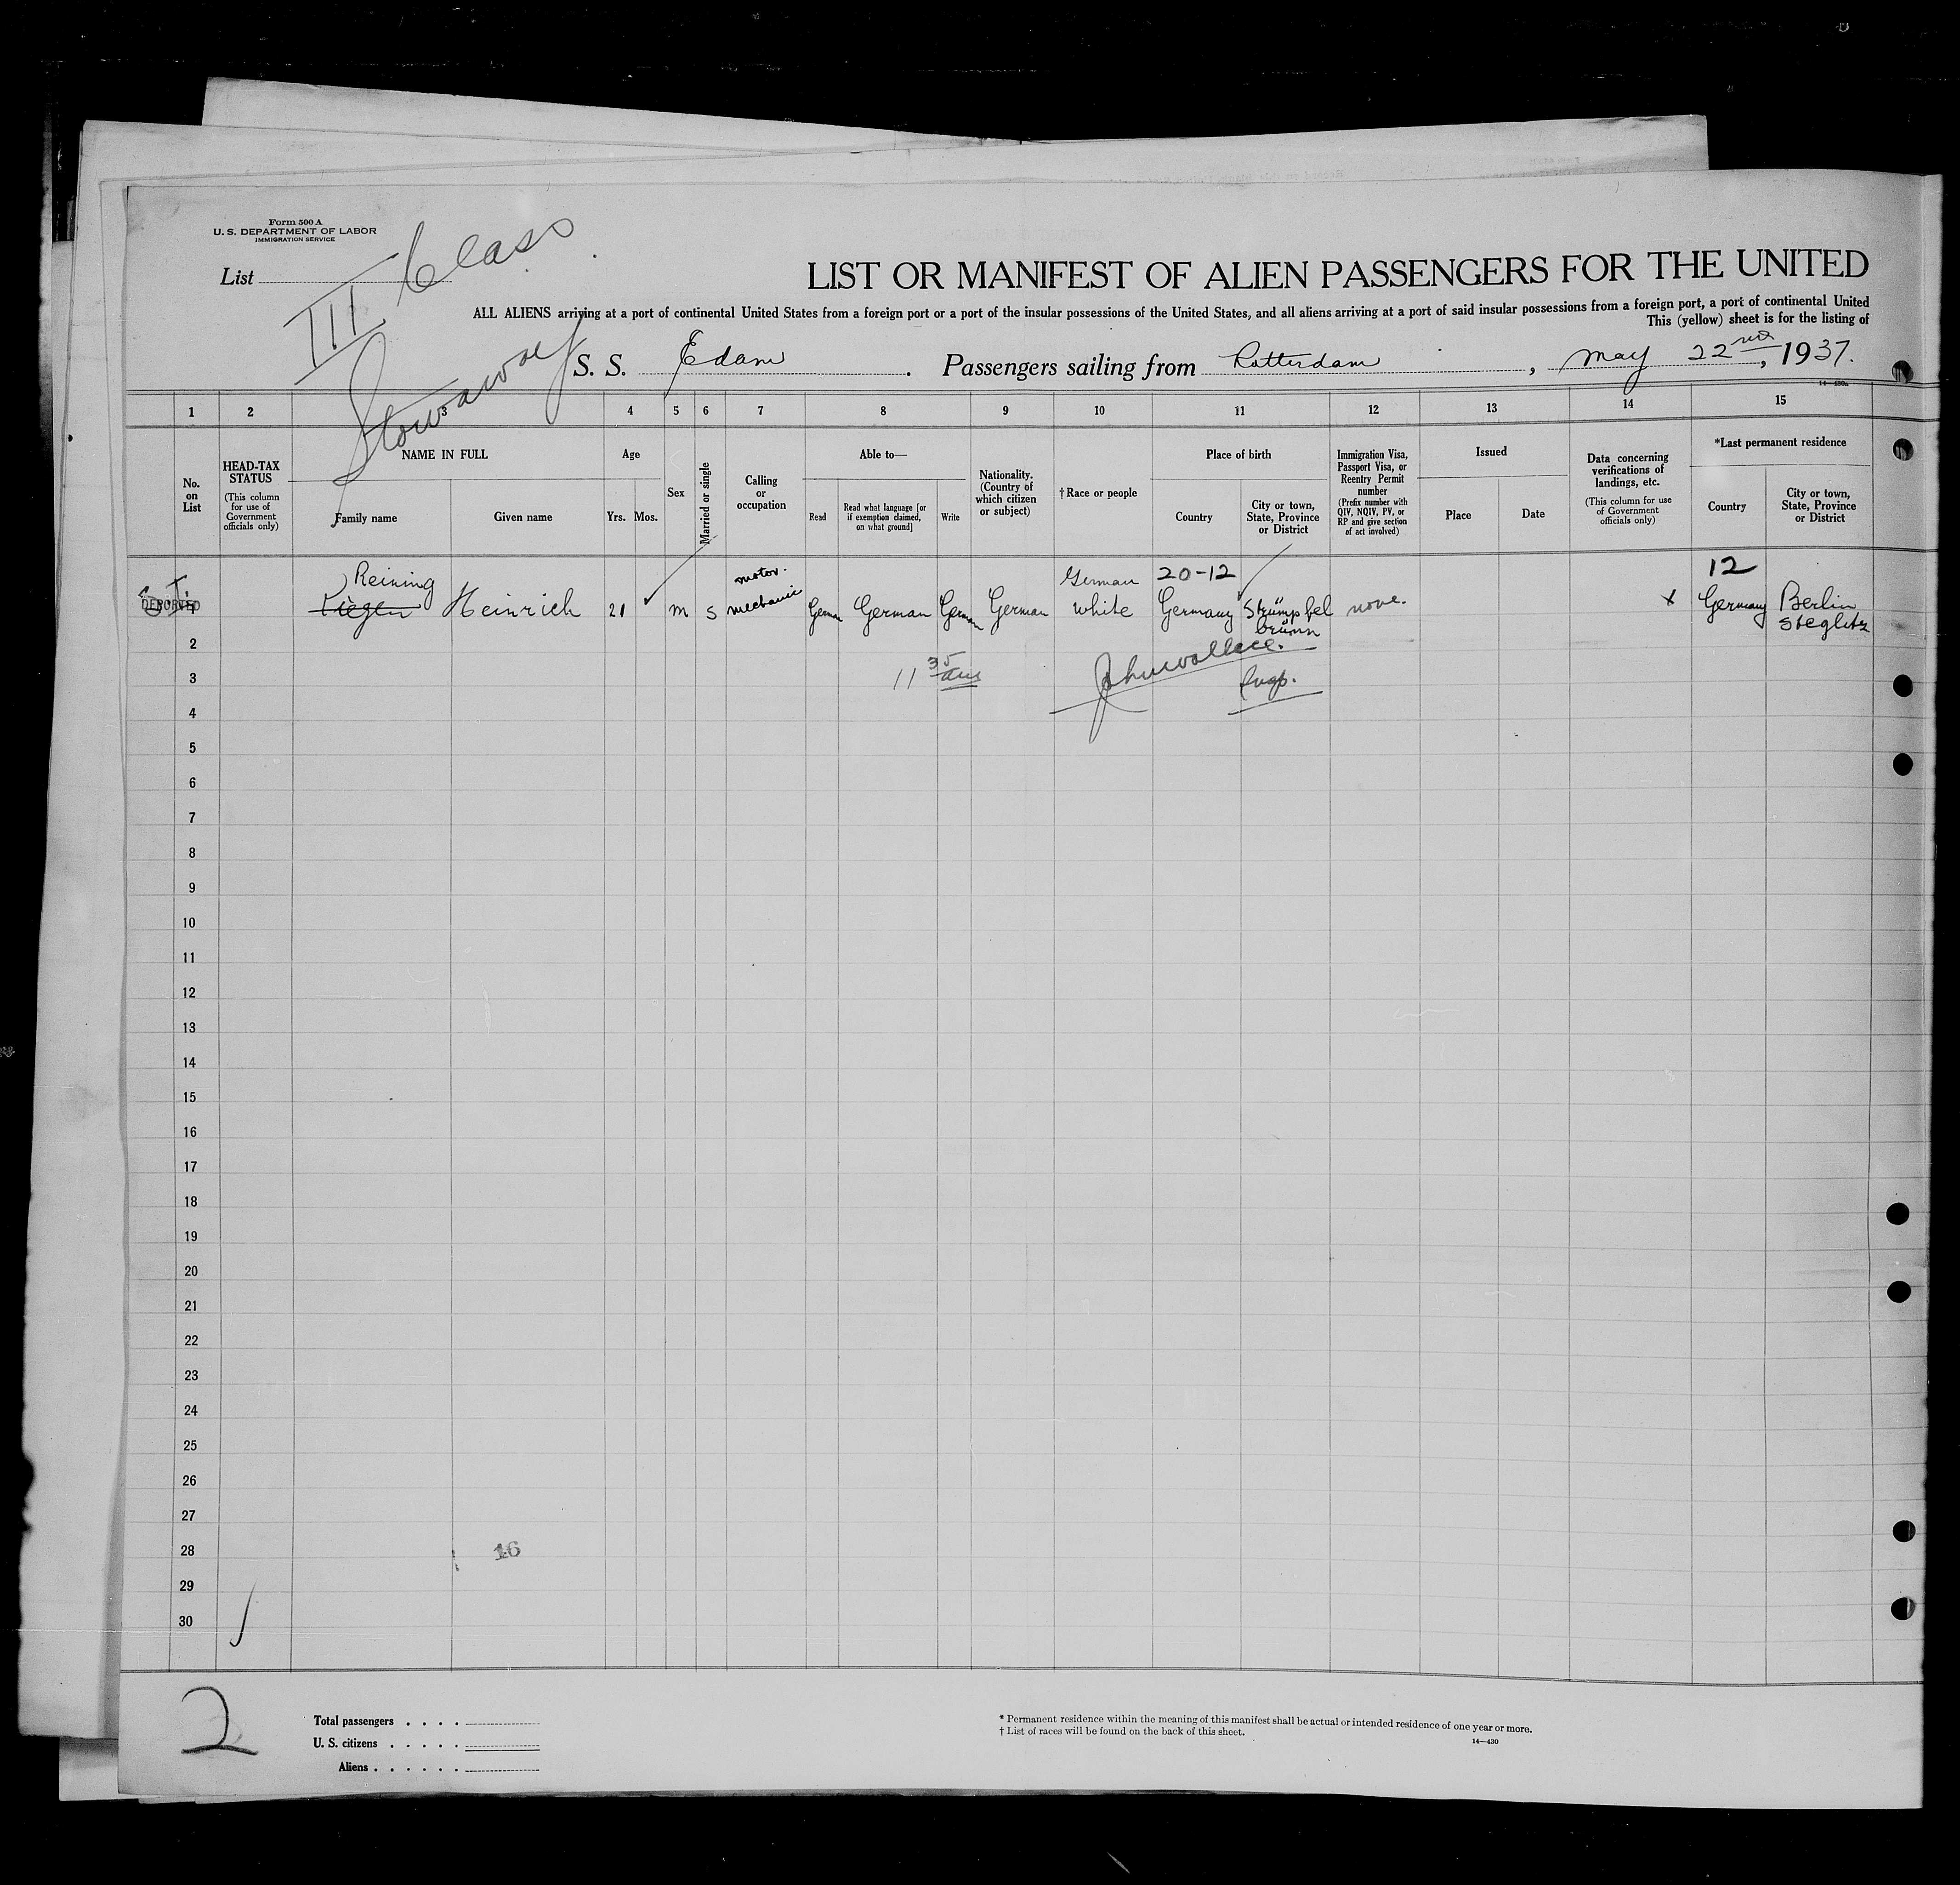 Form 500 A
U. S. DEPARTMENT OF LABOR
IMMIGRATION SERVICE
List
III Class
Stowaway
LIST OR MANIFEST OF ALIEN PASSENGERS FOR THE UNITED
ALL ALIENS arriving at a port of continental United States from a foreign port or a port of the insular possessions of the United States, and all aliens arriving at a port of said insular possessions from a foreign port, a port of continental United
This (yellow) sheet is for the listing of
S. S. Edam . Passengers sailing from Rotterdam , May 22nd, 1937.
14—430a
1 2 3 4 5 6 7 8 9 10 11 12 13 14 15
No. on List
HEAD-TAX STATUS
(This column for use of Government officials only)
NAME IN FULL
Family name
Given name
Age
Yrs. Mos.
Sex
Married or single
Calling or occupation
Able to—
Read
Read what language [or if exemption claimed, on what ground]
Write
Nationality. (Country of which citizen or subject)
†Race or people
Place of birth
Country
City or town, State, Province or District
Immigration Visa, Passport Visa, or Reentry Permit number
(Prefix number with QIV, NQIV, PV, or RP and give section of act involved)
Issued
Place
Date
Data concerning verifications of landings, etc.
(This column for use of Government officials only)
*Last permanent residence
Country
City or town, State, Province or District
Reining motor. German 20-12 12
DEPORTED 1 Heinrich 21 m s mechanic German German German German white Germany Strümpfel none. x Germany Berlin
brünn Steglitz
2
3 11 35 am John Wallace. Insp.
4
5
6
7
8
9
10
11
12
13
14
15
16
17
18
19
20
21
22
23
24
25
26
27
28 16
29
30
2
Total passengers . . . .
U. S. citizens . . . . .
Aliens . . . . . .
* Permanent residence within the meaning of this manifest shall be actual or intended residence of one year or more.
† List of races will be found on the back of this sheet.
14—430